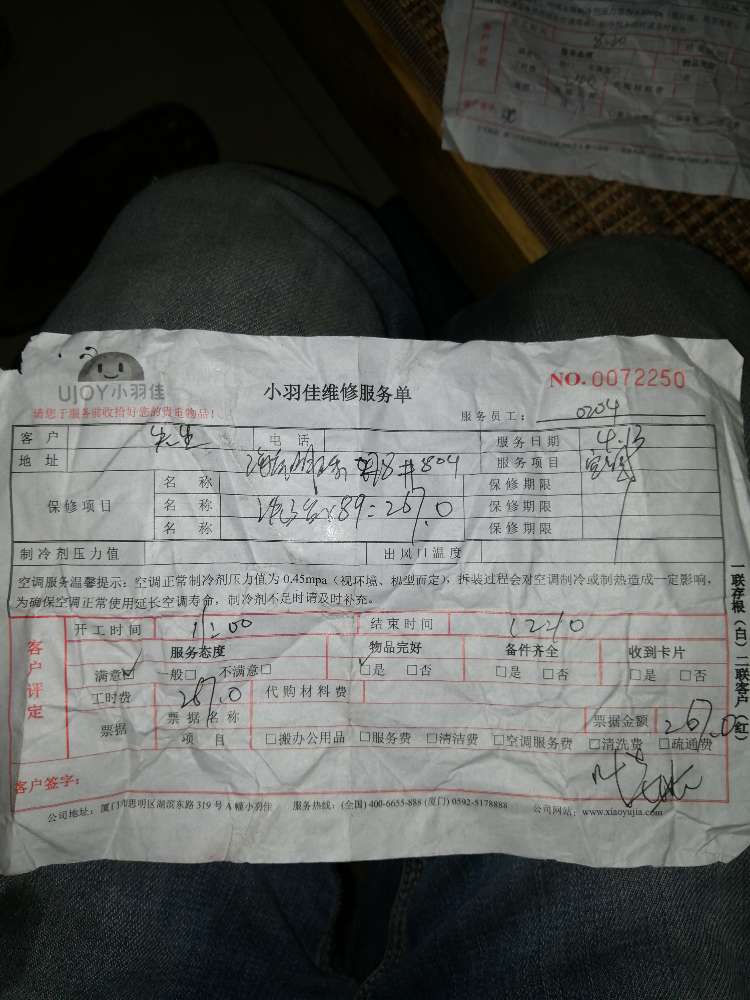 UJOY小羽佳
小羽佳维修服务单
NO.0072250
请您于服务前收拾好您的贵重物品！
服务员工： 0204
客 户 先生 电 话 服务日期 4.13
地 址 804 服务项目
保修项目
名 称 保修期限
名 称 ×89=267.0 保修期限
名 称 保修期限
制冷剂压力值 出风口温度
空调服务温馨提示：空调正常制冷剂压力值为 0.45mpa（视环境、机型而定），拆装过程会对空调制冷或制热造成一定影响，
为确保空调正常使用延长空调寿命，制冷剂不足时请及时补充。
客户评定
开工时间 结束时间
服务态度 物品完好 备件齐全 收到卡片
满意☑ 一般□ 不满意□ ☑是 □否 □是 □否 □是 □否
工时费 267.0 代购材料费
票据 票据名称 票据金额 267.0
项 目 □搬办公用品 □服务费 □清洁费 □空调服务费 □清洗费 □疏通费
客户签字：
公司地址：厦门市思明区湖滨东路 319 号 A 幢小羽佳 服务热线：(全国) 400-6655-888 (厦门) 0592-5178888 公司网站：www.xiaoyujia.com
一联存根（白）二联客户（红）